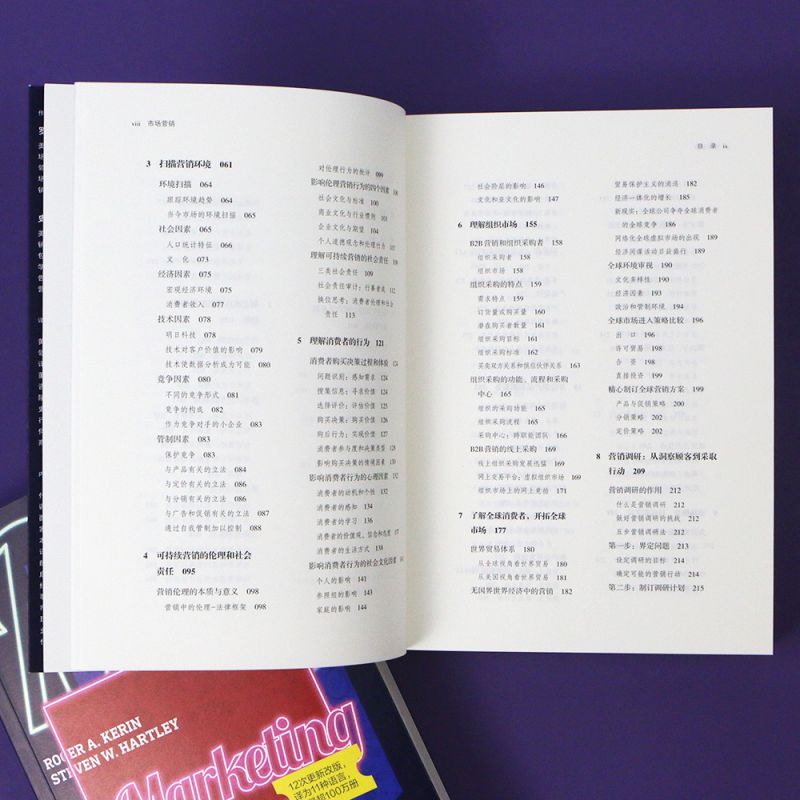 viii 市场营销
3 扫描营销环境 061
环境扫描 064
跟踪环境趋势 064
当今市场的环境扫描 065
社会因素 065
人口统计特征 066
文 化 073
经济因素 075
宏观经济环境 075
消费者收入 077
技术因素 078
明日科技 078
技术对客户价值的影响 079
技术使数据分析成为可能 080
竞争因素 080
不同的竞争形式 081
竞争的构成 082
作为竞争对手的小企业 083
管制因素 083
保护竞争 083
与产品有关的立法 084
与定价有关的立法 086
与分销有关的立法 086
与广告和促销有关的立法 087
通过自我管制加以控制 088
4 可持续营销的伦理和社会
责任 095
营销伦理的本质与意义 098
营销中的伦理-法律框架 098
对伦理行为的批评 099
影响伦理营销行为的四个因素 100
社会文化与标准 100
商业文化与行业惯例 103
企业文化与期望 104
个人道德观念和伦理行为 107
理解可持续营销的社会责任 108
三类社会责任 109
社会责任审计:行善者成
换位思考:消费者伦理和社会
责任 113
5 理解消费者的行为 121
消费者购买决策过程和体验 124
问题识别:感知需求 124
搜集信息:寻求价值 124
选择评价:评估价值 125
购买决策:购买价值
购后行为:实现价值 127
消费者参与度和决策类型
影响购买决策的情境因素 130
影响消费者行为的心理因素
消费者的动机和个性 132
消费者的感知 134
消费者的学习 136
消费者的价值观、信念和态度
消费者的生活方式 138
影响消费者行为的社会文化因素
个人的影响 141
参照组的影响 143
家庭的影响 144
目 录 ix
社会阶层的影响 146
文化和亚文化的影响 147
6 理解组织市场 155
B2B营销和组织采购者 158
组织采购者 158
组织市场 158
组织采购的特点 159
需求特点 159
订货量或购买量 160
潜在购买者数量 161
组织购买目标 161
组织购买标准 162
买卖双方关系和供应伙伴关系 163
组织采购的功能、流程和采购
中心 165
组织的采购功能 165
组织采购流程 165
采购中心:跨职能团队 166
B2B营销的线上采购 169
线上组织采购发展迅猛 169
网上交易平台:虚拟组织市场 169
组织市场上的网上竞拍 171
7 了解全球消费者、开拓全球
市场 177
世界贸易体系 180
从全球视角看世界贸易 180
从美国视角看世界贸易 181
无国界世界经济中的营销 182
贸易保护主义的消退 182
经济一体化的增长 185
新现实:全球公司争夺全球消费者
的全球竞争 186
网络化全球虚拟市场的出现 189
经济间谍活动日益猖狂 189
全球环境审视 190
文化多样性 190
经济因素 193
政治和管制环境 194
全球市场进入策略比较 196
出 口 196
许可贸易 198
合 资 198
直接投资 199
精心制订全球营销方案 199
产品与促销策略 200
分销策略 202
定价策略 202
8 营销调研:从洞察顾客到采取
行动 209
营销调研的作用 212
什么是营销调研 212
做好营销调研的挑战 212
五步营销调研法 212
第一步:界定问题 213
设定调研的目标 214
确定可能的营销行动 214
第二步:制订调研计划 215
ROGER A. KERIN
STEVEN W. HARTLEY
Marketing
12次更新改版,
译为11种语言,
超100万册